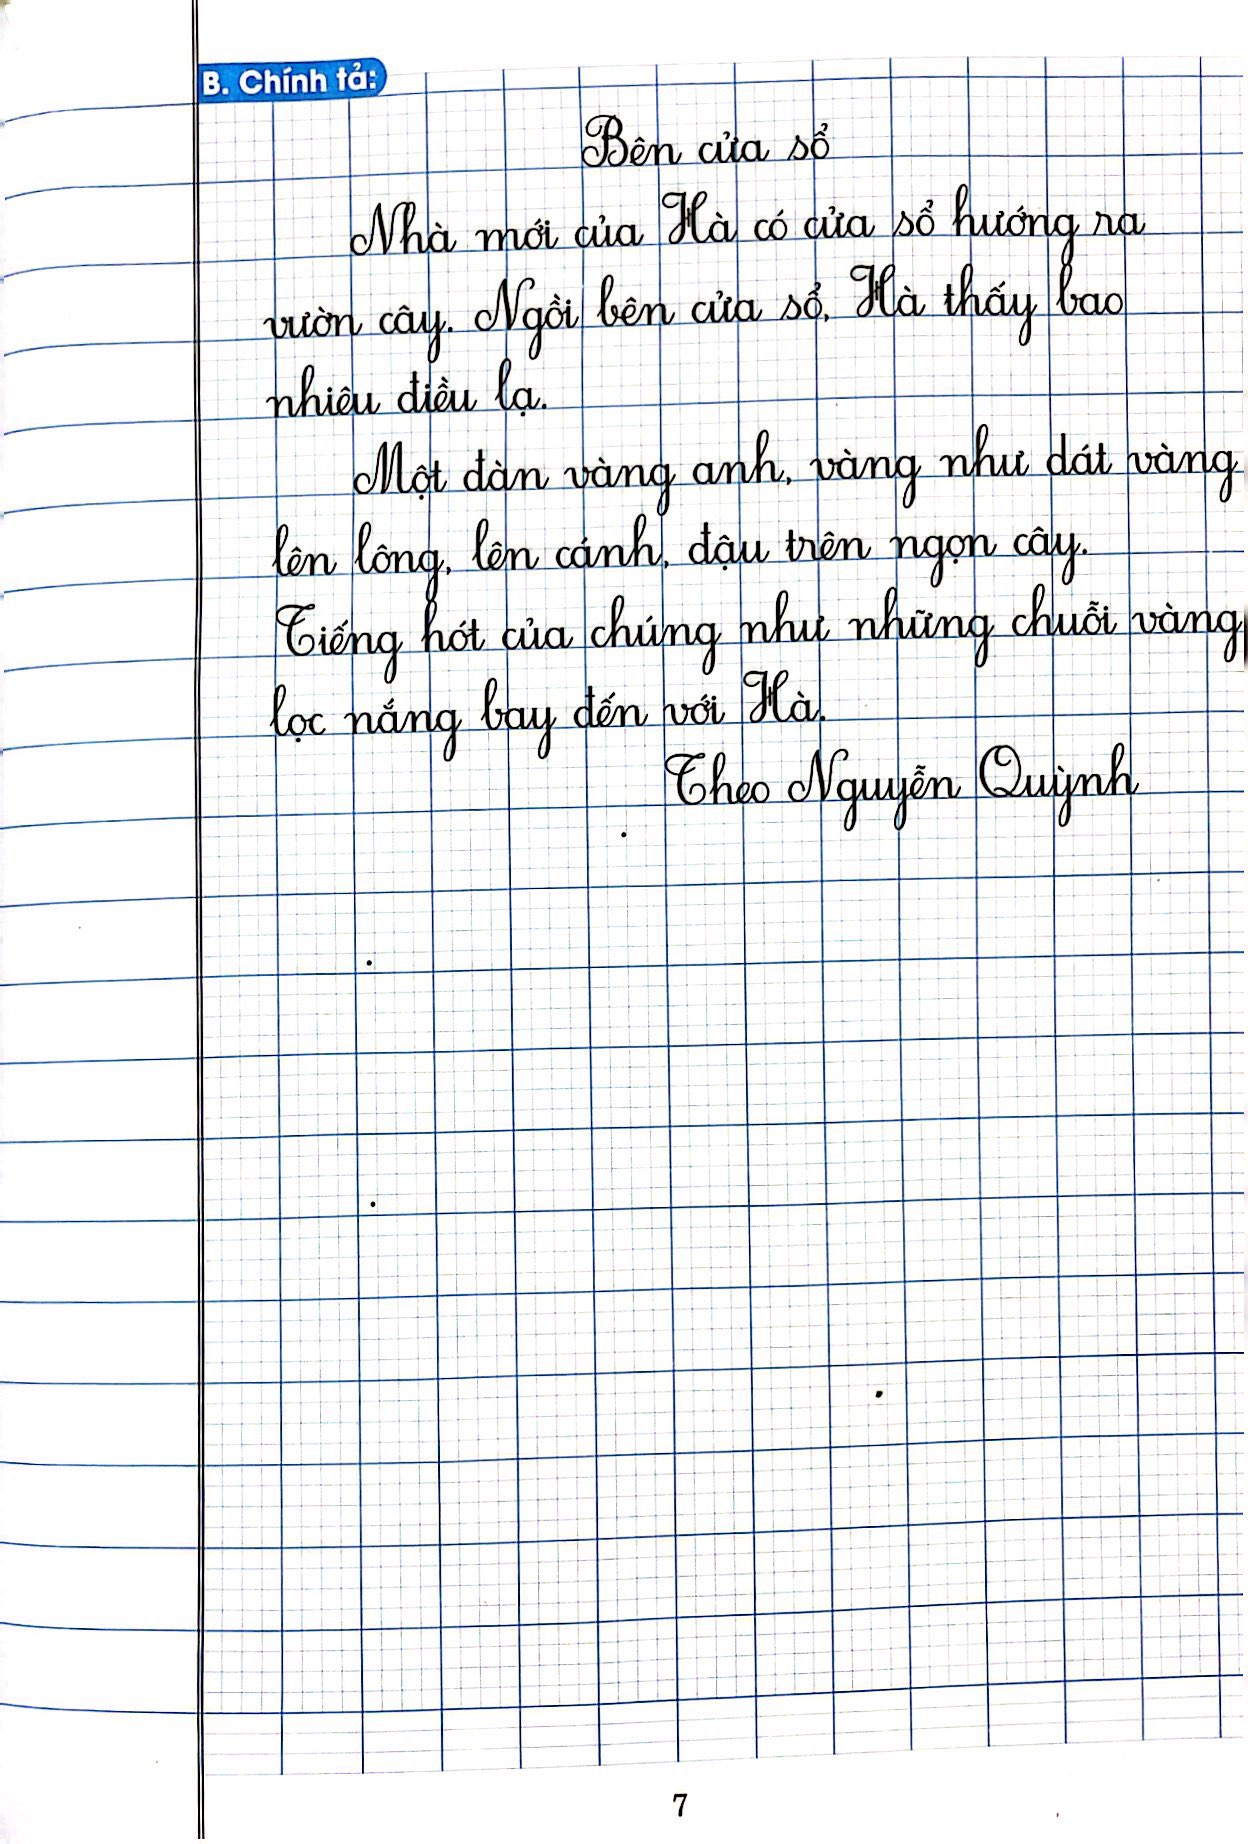 B. Chính tả:
Bên cửa sổ
Nhà mới của Hà có cửa sổ hướng ra
vườn cây. Ngồi bên cửa sổ, Hà thấy bao
nhiêu điều lạ.
Một đàn vàng anh, vàng như dát vàng
lên lông, lên cánh, đậu trên ngọn cây.
Tiếng hót của chúng như những chuỗi vàng
lọc nắng bay đến với Hà.
Theo Nguyễn Quỳnh
7